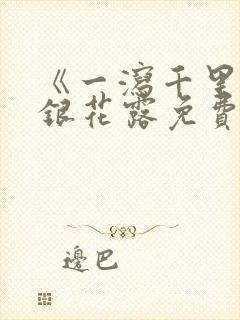 《一瀉千里
銀花露免費
邊巴